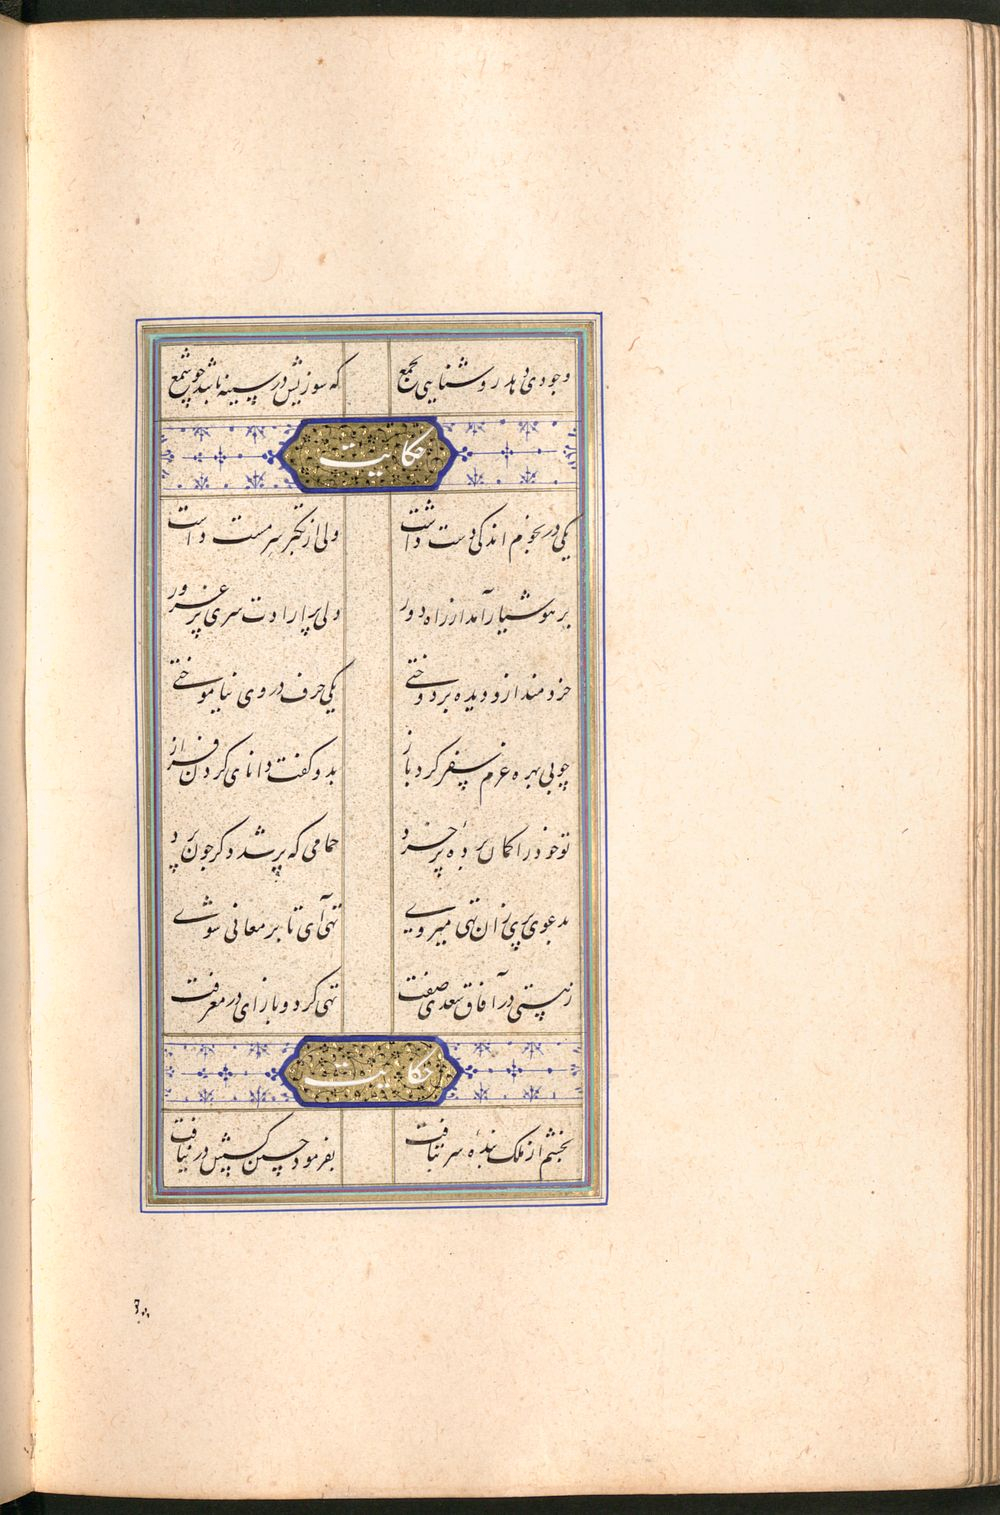 وجودی دهد روشنایی بجمع که سوزیش در سینه باشد چو شمع
حکایت
یکی در نجوم اندکی دست داشت ولی از تکبر سر مست داشت
بر هوشیار آمد از راه دور ولی پر ارادت سری پر غرور
خردمند ازو دیده بر دوختی یکی حرف در وی نیاموختی
چو بی بهره عزم سفر کرد باز بدو گفت دانای گردن فراز
تو خود را گمان برده پر خرد که پر شد دگر چون برد
بدعوی پری زان تهی میروی تهی آی تا بر معانی شوی
ز نیستی در آفاق سعدی صفت تهی گرد و باز ای در معرفت
حکایت
بخشم از ملک بنده سر بتافت بفرمود جستن کسش در نیافت